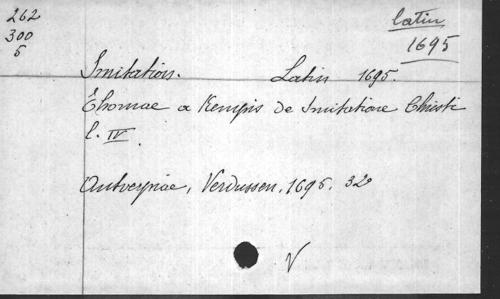 262
300
5
latin
1695
Imitation. Latin 1695.
Thomae a Kempis De Imitatione Christi
l. IV.
Antverpiae, Verdussen, 1695. 32
V